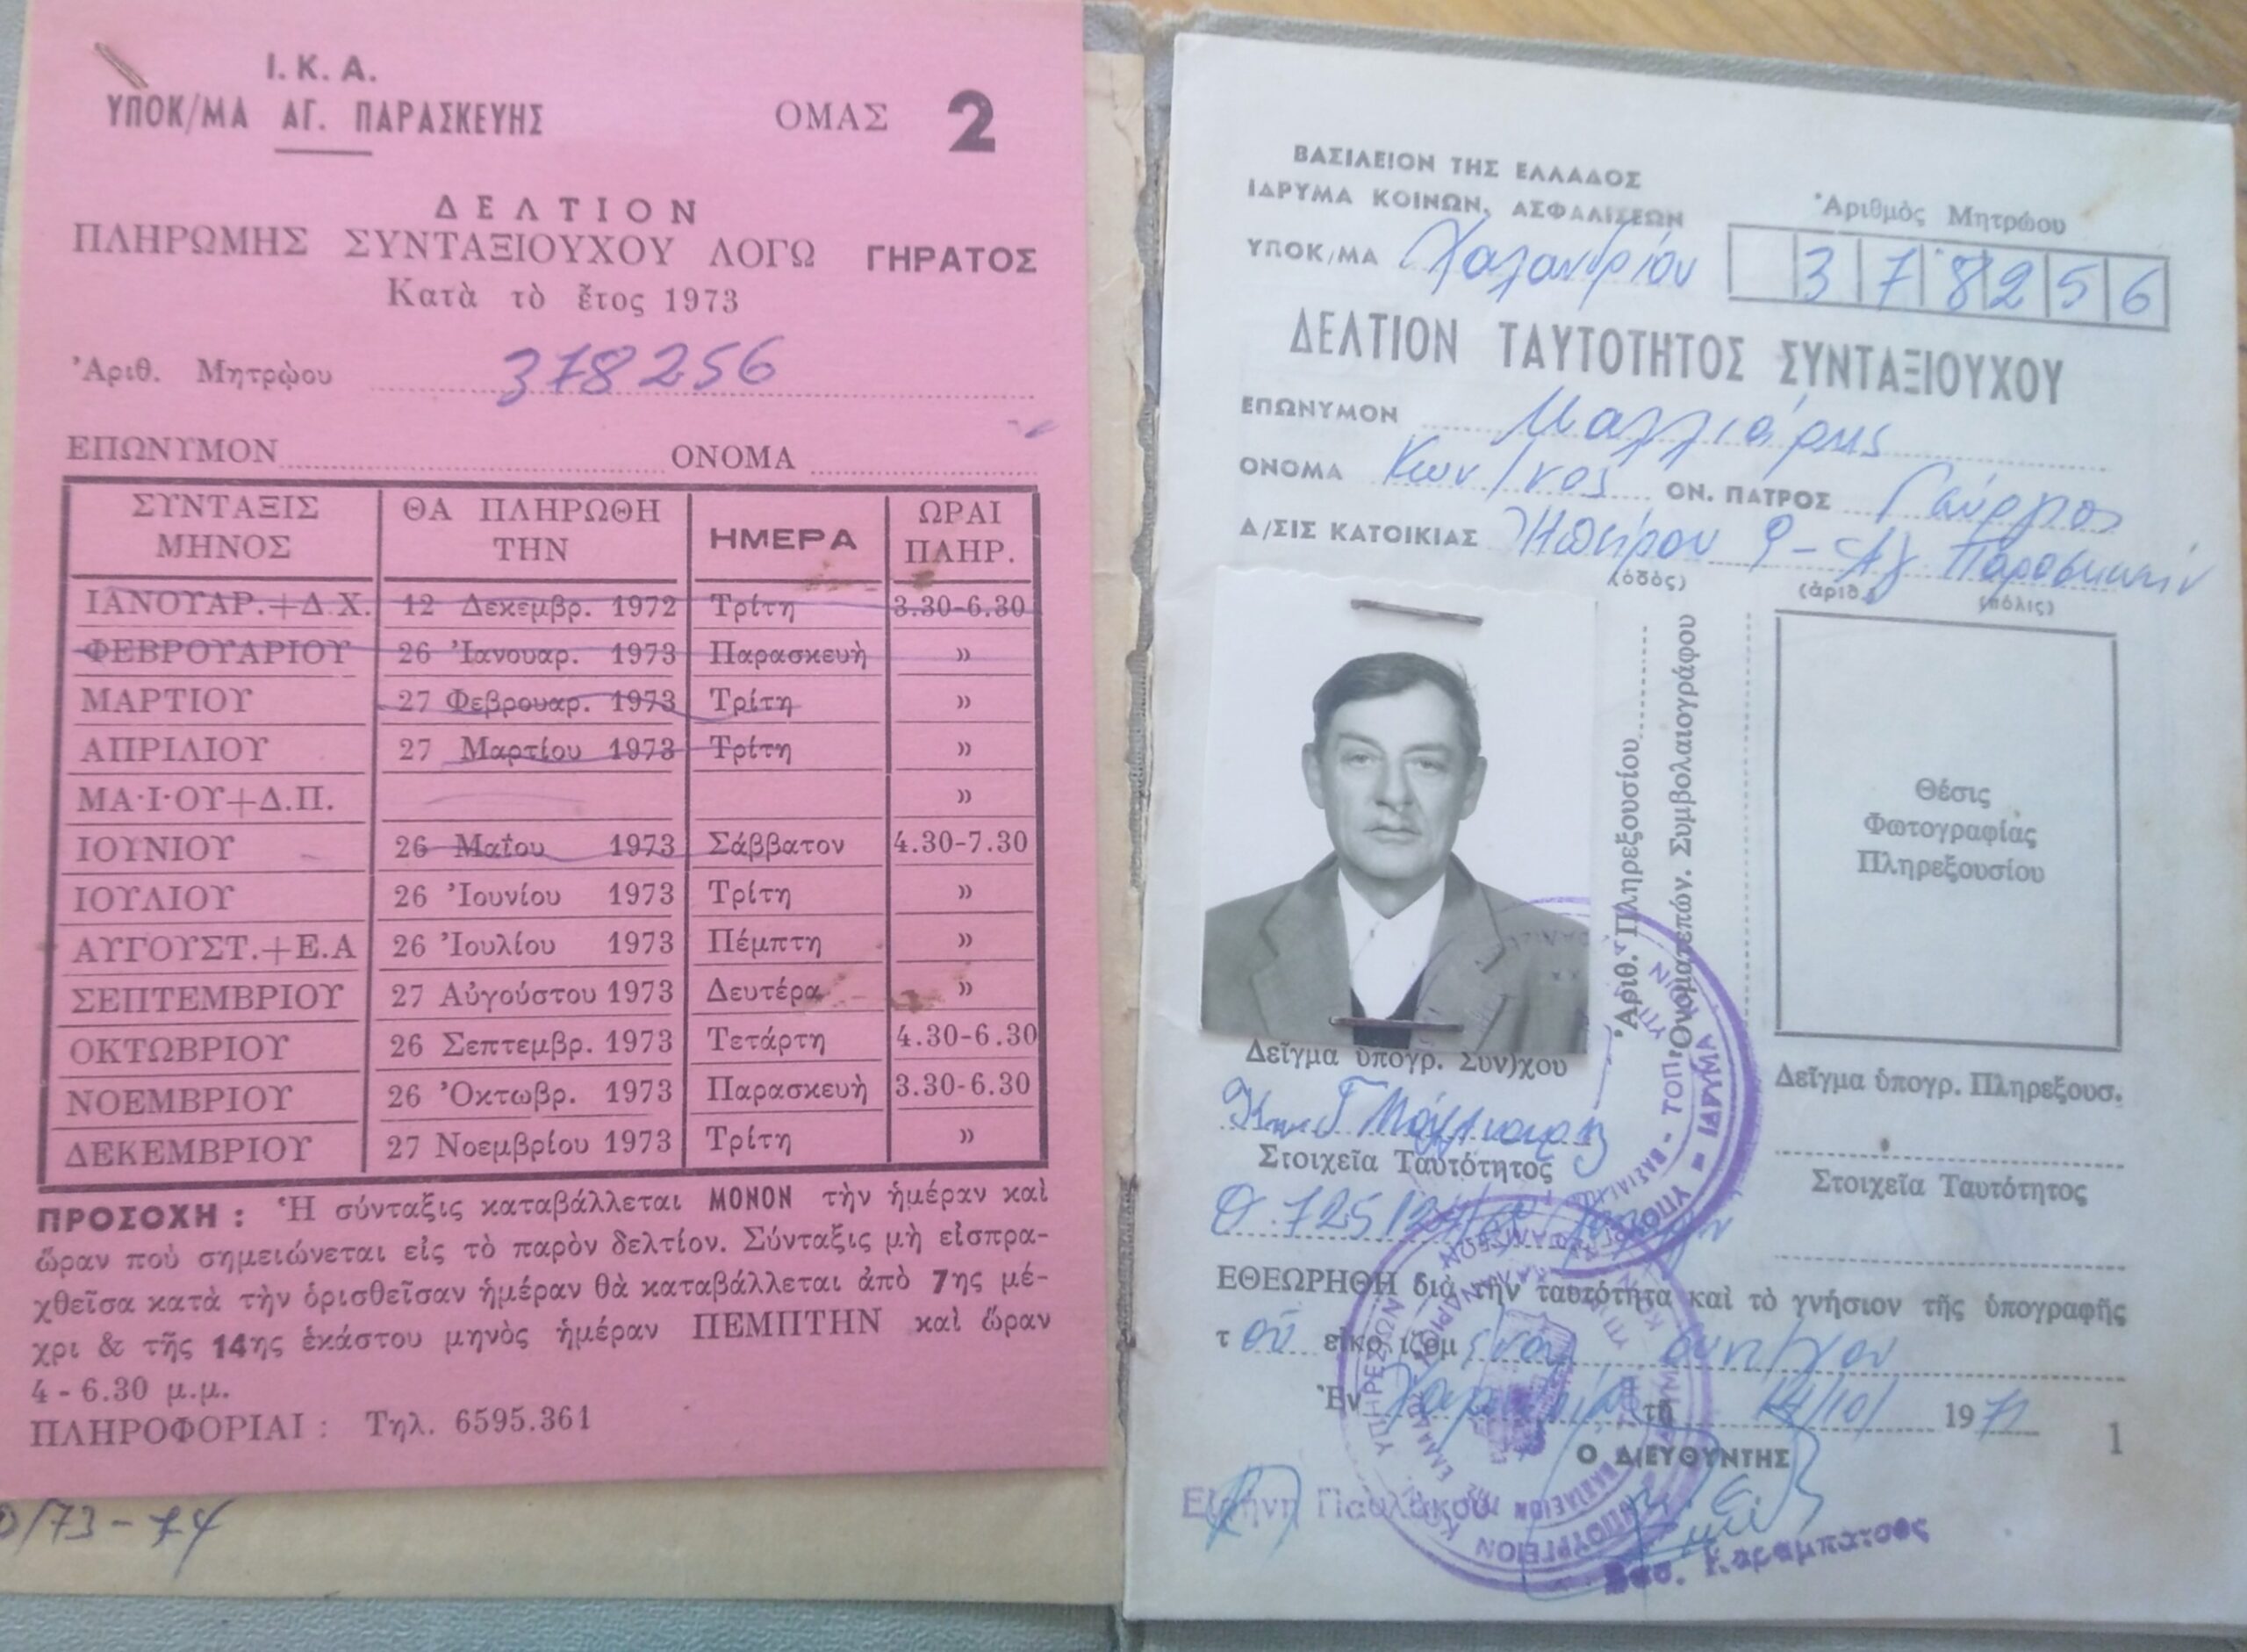 Ι. Κ. Α.
ΥΠΟΚ/ΜΑ ΑΓ. ΠΑΡΑΣΚΕΥΗΣ
ΟΜΑΣ 2
ΔΕΛΤΙΟΝ
ΠΛΗΡΩΜΗΣ ΣΥΝΤΑΞΙΟΥΧΟΥ ΛΟΓΩ ΓΗΡΑΤΟΣ
Κατὰ τὸ ἔτος 1973
Ἀριθ. Μητρῴου 378256
ΕΠΩΝΥΜΟΝ ΟΝΟΜΑ
ΣΥΝΤΑΞΙΣ ΜΗΝΟΣ ΘΑ ΠΛΗΡΩΘΗ ΤΗΝ ΗΜΕΡΑ ΩΡΑΙ ΠΛΗΡ.
ΙΑΝΟΥΑΡ.+Δ.Χ. 12 Δεκεμβρ. 1972 Τρίτη 3.30-6.30
ΦΕΒΡΟΥΑΡΙΟΥ 26 Ἰανουαρ. 1973 Παρασκευὴ »
ΜΑΡΤΙΟΥ 27 Φεβρουαρ. 1973 Τρίτη »
ΑΠΡΙΛΙΟΥ 27 Μαρτίου 1973 Τρίτη »
ΜΑ·Ι·ΟΥ+Δ.Π. »
ΙΟΥΝΙΟΥ 26 Μαΐου 1973 Σάββατον 4.30-7.30
ΙΟΥΛΙΟΥ 26 Ἰουνίου 1973 Τρίτη »
ΑΥΓΟΥΣΤ.+Ε.Α 26 Ἰουλίου 1973 Πέμπτη »
ΣΕΠΤΕΜΒΡΙΟΥ 27 Αὐγούστου 1973 Δευτέρα »
ΟΚΤΩΒΡΙΟΥ 26 Σεπτεμβρ. 1973 Τετάρτη 4.30-6.30
ΝΟΕΜΒΡΙΟΥ 26 Ὀκτωβρ. 1973 Παρασκευὴ 3.30-6.30
ΔΕΚΕΜΒΡΙΟΥ 27 Νοεμβρίου 1973 Τρίτη »
ΠΡΟΣΟΧΗ : Ἡ σύνταξις καταβάλλεται ΜΟΝΟΝ τὴν ἡμέραν καὶ
ὥραν ποὺ σημειώνεται εἰς τὸ παρὸν δελτίον. Σύνταξις μὴ εἰσπρα-
χθεῖσα κατὰ τὴν ὁρισθεῖσαν ἡμέραν θὰ καταβάλλεται ἀπὸ 7ης μέ-
χρι & τῆς 14ης ἑκάστου μηνὸς ἡμέραν ΠΕΜΠΤΗΝ καὶ ὥραν
4 - 6.30 μ.μ.
ΠΛΗΡΟΦΟΡΙΑΙ : Τηλ. 6595.361
/73 - 74
ΒΑΣΙΛΕΙΟΝ ΤΗΣ ΕΛΛΑΔΟΣ
ΙΔΡΥΜΑ ΚΟΙΝΩΝ. ΑΣΦΑΛΙΣΕΩΝ
Ἀριθμὸς Μητρώου
ΥΠΟΚ/ΜΑ Χαλανδρίου 3 7 8 2 5 6
ΔΕΛΤΙΟΝ ΤΑΥΤΟΤΗΤΟΣ ΣΥΝΤΑΞΙΟΥΧΟΥ
ΕΠΩΝΥΜΟΝ Μαλλιάρης
ΟΝΟΜΑ Κων/νος ΟΝ. ΠΑΤΡΟΣ Γεώργιος
Δ/ΣΙΣ ΚΑΤΟΙΚΙΑΣ Ἠπείρου 9 - Αγ Παρασκευήν
(ὁδὸς) (ἀριθ.) (πόλις)
Ἀριθ. Πληρεξουσίου
Ὀνοματεπών. Συμβολαιογράφου
Θέσις
Φωτογραφίας
Πληρεξουσίου
Δεῖγμα ὑπογρ. Συν)χου
Δεῖγμα ὑπογρ. Πληρεξουσ.
Στοιχεῖα Ταὐτότητος
Στοιχεῖα Ταὐτότητος
ΕΘΕΩΡΗΘΗ διὰ τὴν ταυτότητα καὶ τὸ γνήσιον τῆς ὑπογραφῆς
τ οῦ εἰκονιζομένου συντ/χου
Ἐν τῇ 14/10/ 1971
Ο ΔΙΕΥΘΥΝΤΗΣ
1
Εἰρήνη Παυλάκου
Βασ. Καραμπατσος